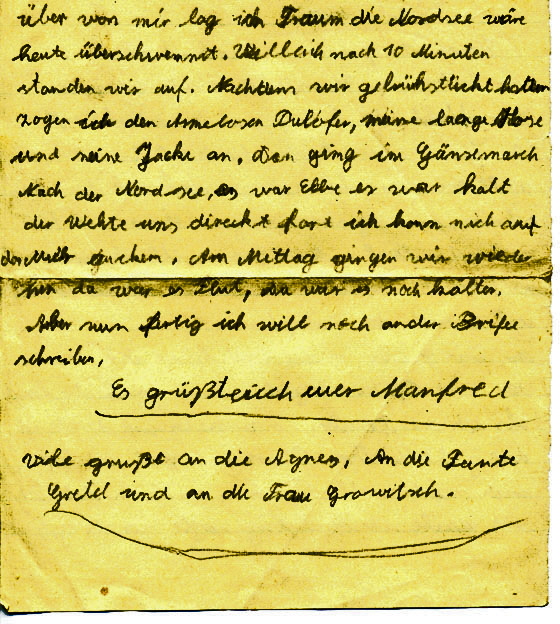 über von mir lag ich Traum die Nordsee wäre
heute überschwemmt. Villeich nach 10 Minuten
standen wir auf. Nachtem wir gebrühstückt hatten
zogen ich den Armelosen Pulofer, meine lange Hose
und meine Jacke an. Dan ging im Gänsemarsch
Nach der Nordsee, es war Ebbe es war kalt
der Wehte uns direckt fort ich konn mich auf
gucken. Am Mittag gingen wir wieder
hin da war es Flut, da war es noch kalter.
Aber nun fertig ich will noch ander Brife
schreiben,
Es grüßt euch euer Manfred
Viele grußt an die Agnes, An die Tante
Gretel und an die Frau Growitsch.